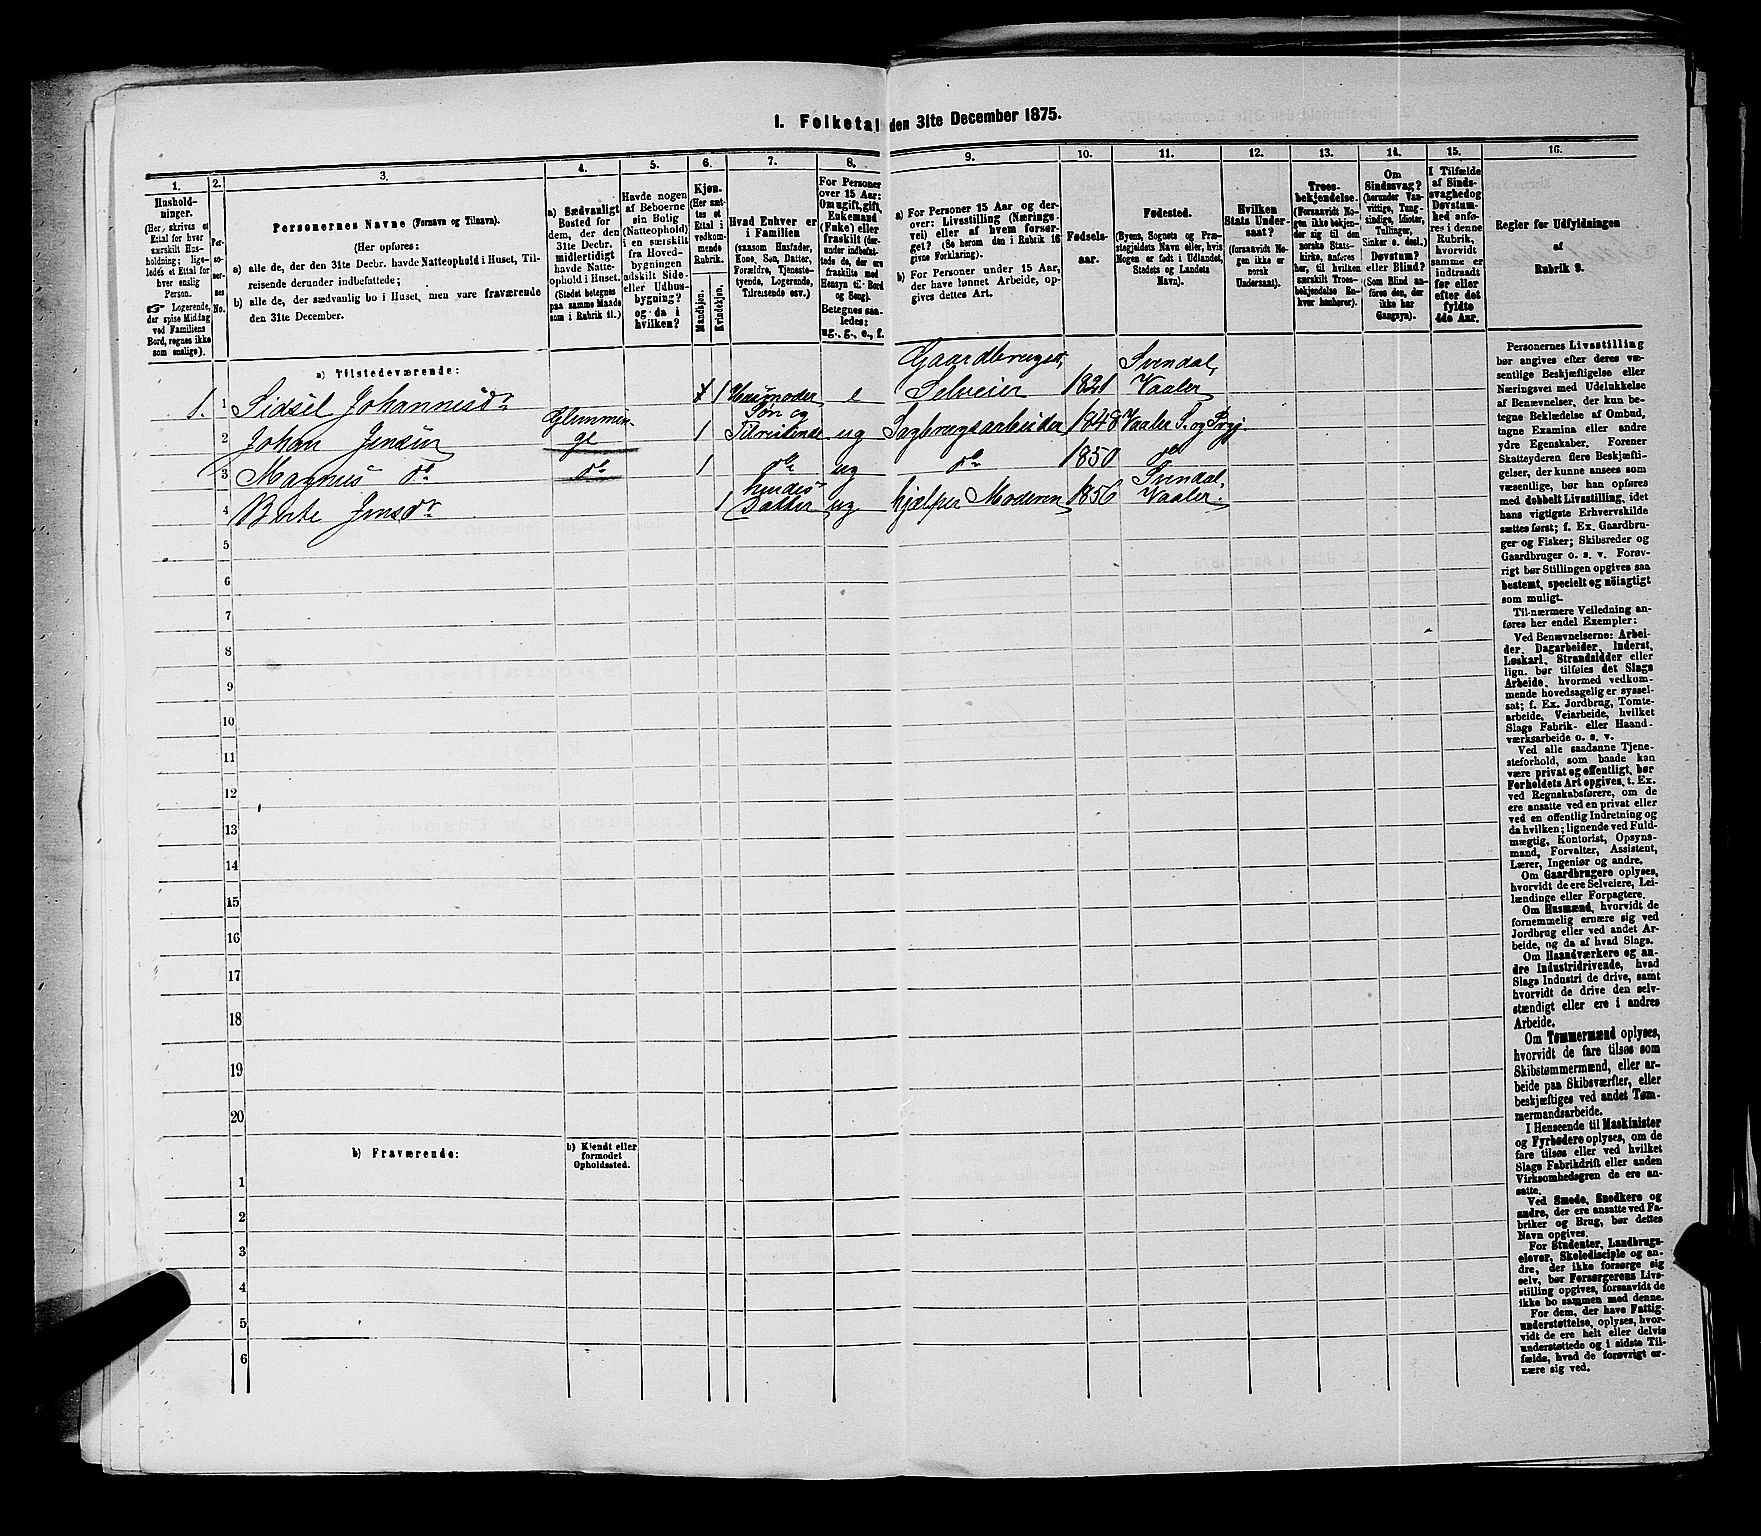 I. Folketal den 31te December 1875.
1.
2.
3.
4.
5.
6.
7.
8.
9.
10.
11.
12.
13.
14.
15.
16.
Husholdninger.
(Her skrives et
Ettal for hver
særskilt Husholdning; ligeledes et Ettal for
hver enslig
Person.
☞ Logerende,
der spise Middag
ved Familiens
Bord, regnes ikke
som enslige).
Personernes No.
Personernes Navne (Fornavn og Tilnavn).
(Her opføres:
a) alle de, der den 31te Decbr. havde Natteophold i Huset, Tilreisende derunder indbefattede;
b) alle de, der sædvanlig bo i Huset, men vare fraværende
den 31te December.
a) Sædvanligt
Bosted for
dem, der den
31te Decbr.
midlertidigt
havde Natteophold i Huset.
(Stedet betegnes
paa samme Maade
som i Rubrik 11.)
Havde nogen
af Beboerne
sin Bolig
(Natteophold)
i en særskilt
fra Hovedbygningen
adskilt Side-
eller Udhusbygning?
og da i
hvilken?
Kjøn.
(Her sættes et
Ettal i
vedkommende
Rubrik.
Mandkjøn.
Kvindekjøn.
Hvad Enhver er
i Familien
(saasom Husfader,
Kone, Søn, Datter,
Forældre, Tjenestetyende, Logerende,
Tilreisende osv.)
For Personer
over 15 Aar:
Om ugift, gift,
Enkemand
(Enke) eller
fraskilt (derunder indbefattede de, der ere
fraskilte med
Hensyn til Bord
og Seng).
Betegnes saaledes:
ug., g., e., f.
a) For Personer 15 Aar og derover: Livsstilling (Næringsvei) eller af hvem forsørget? (Se herom den i Rubrik 16
givne Forklaring).
b) For Personer under 15 Aar,
der have lønnet Arbeide, opgives dettes Art.
Fødselsaar.
Fødested.
(Byens, Sognets og Præstegjeldets Navn eller, hvis
Nogen er født i Udlandet,
Stedets og Landets
Navn).
Hvilken
Stats Undersaat?
(forsaavidt Nogen ikke er
norsk
Undersaat).
Troesbekjendelse.
(Forsaavidt Nogen ikke bekjender sig til den
norske Statskirke, anføres
her, til hvilken
særskilt Troesbekjendelse Enhver henhører).
Om
Sindssvag?
(herunder Vanvittige, Tungsindige, Idioter,
Tullinger,
Sinker o. desl.)
Døvstum?
eller Blind?
(Som Blind anføres den, der
ikke har
Gangsyn).
I Tilfælde
af Sindssvaghed og
Døvstumhed anføres i denne
Rubrik,
hvorvidt
samme er
indtraadt
før eller
efter det
fyldte
4de Aar.
Regler for Udfyldningen
af
Rubrik 9.
a) Tilstedeværende:
1. 1 Sidsel Johannesdr 1 Husmoder e Gaardbruger, Selveier 1821 Svendal, Vaaler
2 Johan Jensen Glemminge 1 Søn og Tilreisende ug Sagbrugsarbeider 1848 Vaaler S. og Prgj.
3 Magnus do do 1 do ug do 1850 do
4 Berte Jensdr 1 hendes Datter ug hjælper Moderen 1856 Svendal, Vaaler.
5
6
7
8
9
10
11
12
13
14
15
16
17
18
19
20
b) Fraværende:
b) Kjendt eller
formodet
Opholdssted.
1
2
3
4
5
6
Personernes Livsstilling
bør angives efter deres væsentlige Beskjæftigelse eller
Næringsvei med Udelukkelse
af Benævnelser, der kun betegne Beklædelse af Ombud,
tagne Examina eller andre
ydre Egenskaber. Forener
Skatteyderen flere Beskjæftigelser, der kunne ansees som
væsentlige, bør han opføres
med dobbelt Livsstilling, idet
hans vigtigste Erhvervskilde
sættes først; f. Ex. Gaardbruger og Fisker; Skibsreder og
Gaardbruger o. s. v. Forøvrigt bør Stillingen opgives saa
bestemt, specielt og nöiagtigt
som muligt.
Til nærmere Veiledning anføres her endel Exempler:
Ved Benævnelserne: Arbeider, Dagarbeider, Inderst,
Løskarl, Strandsidder eller
lign. bør tilføles det Slags
Arbeide, hvormed vedkommende hovedsagelig er sysselsat; f. Ex. Jordbrug, Tomtearbeide, Veiarbeide, hvilket
Slags Fabrik- eller Haandværksarbeide o. s. v.
Ved alle saadanne Tjenesteforhold, som baade kan
være privat og offentligt, bør
Forholdets Art opgives, t. Ex.
ved Regnskabsførere, om de
ere ansatte ved en privat eller
ved en offentlig Indretning og
da hvilken; lignende ved Fuldmægtig, Kontorist, Opsynsmand, Forvalter, Assistent,
Lærer, Ingeniør og andre.
Om Gaardbrugere oplyses,
hvorvidt de ere Selveiere, Leilændinge eller Forpagtere.
Om Husmænd, hvorvidt de
fornemmelig ernære sig ved
Jordbrug eller ved andet Arbeide, og da af hvad Slags.
Om Haandværkere og andre Industridrivende, hvad
Slags Industri de drive, samt
hvorvidt de drive den selvstændigt eller ere i andres
Arbeide.
Om Tømmermænd oplyses,
hvorvidt de fare tilsøs som
Skibstømmermænd, eller arbeide paa Skibsværfter, eller
beskjæftiges ved andet Tømmermandsarbeide.
I Henseende til Maskinister
og Fyrbødere oplyses, om de
fare tilsøs eller ved hvilket
Slags Fabrikdrift eller anden
Virksomhedsgren de ere ansatte.
Ved Smede, Snedkere og
andre, der ere ansatte ved Fabriker og Brug, bør dettes
Navn opgives.
For Studenter, Landbrugselever, Skoledisciple og andre, der ikke forsørge sig
selv, bør Forsørgerens Livsstilling opgives, forsaavidt de
ikke bo sammen med denne.
For dem, der have Fattigunderstøttelse, oplyses, hvorvidt de ere helt eller delvis
understøttede og i sidste Tilfælde, hvad de forøvrigt ernære sig ved.